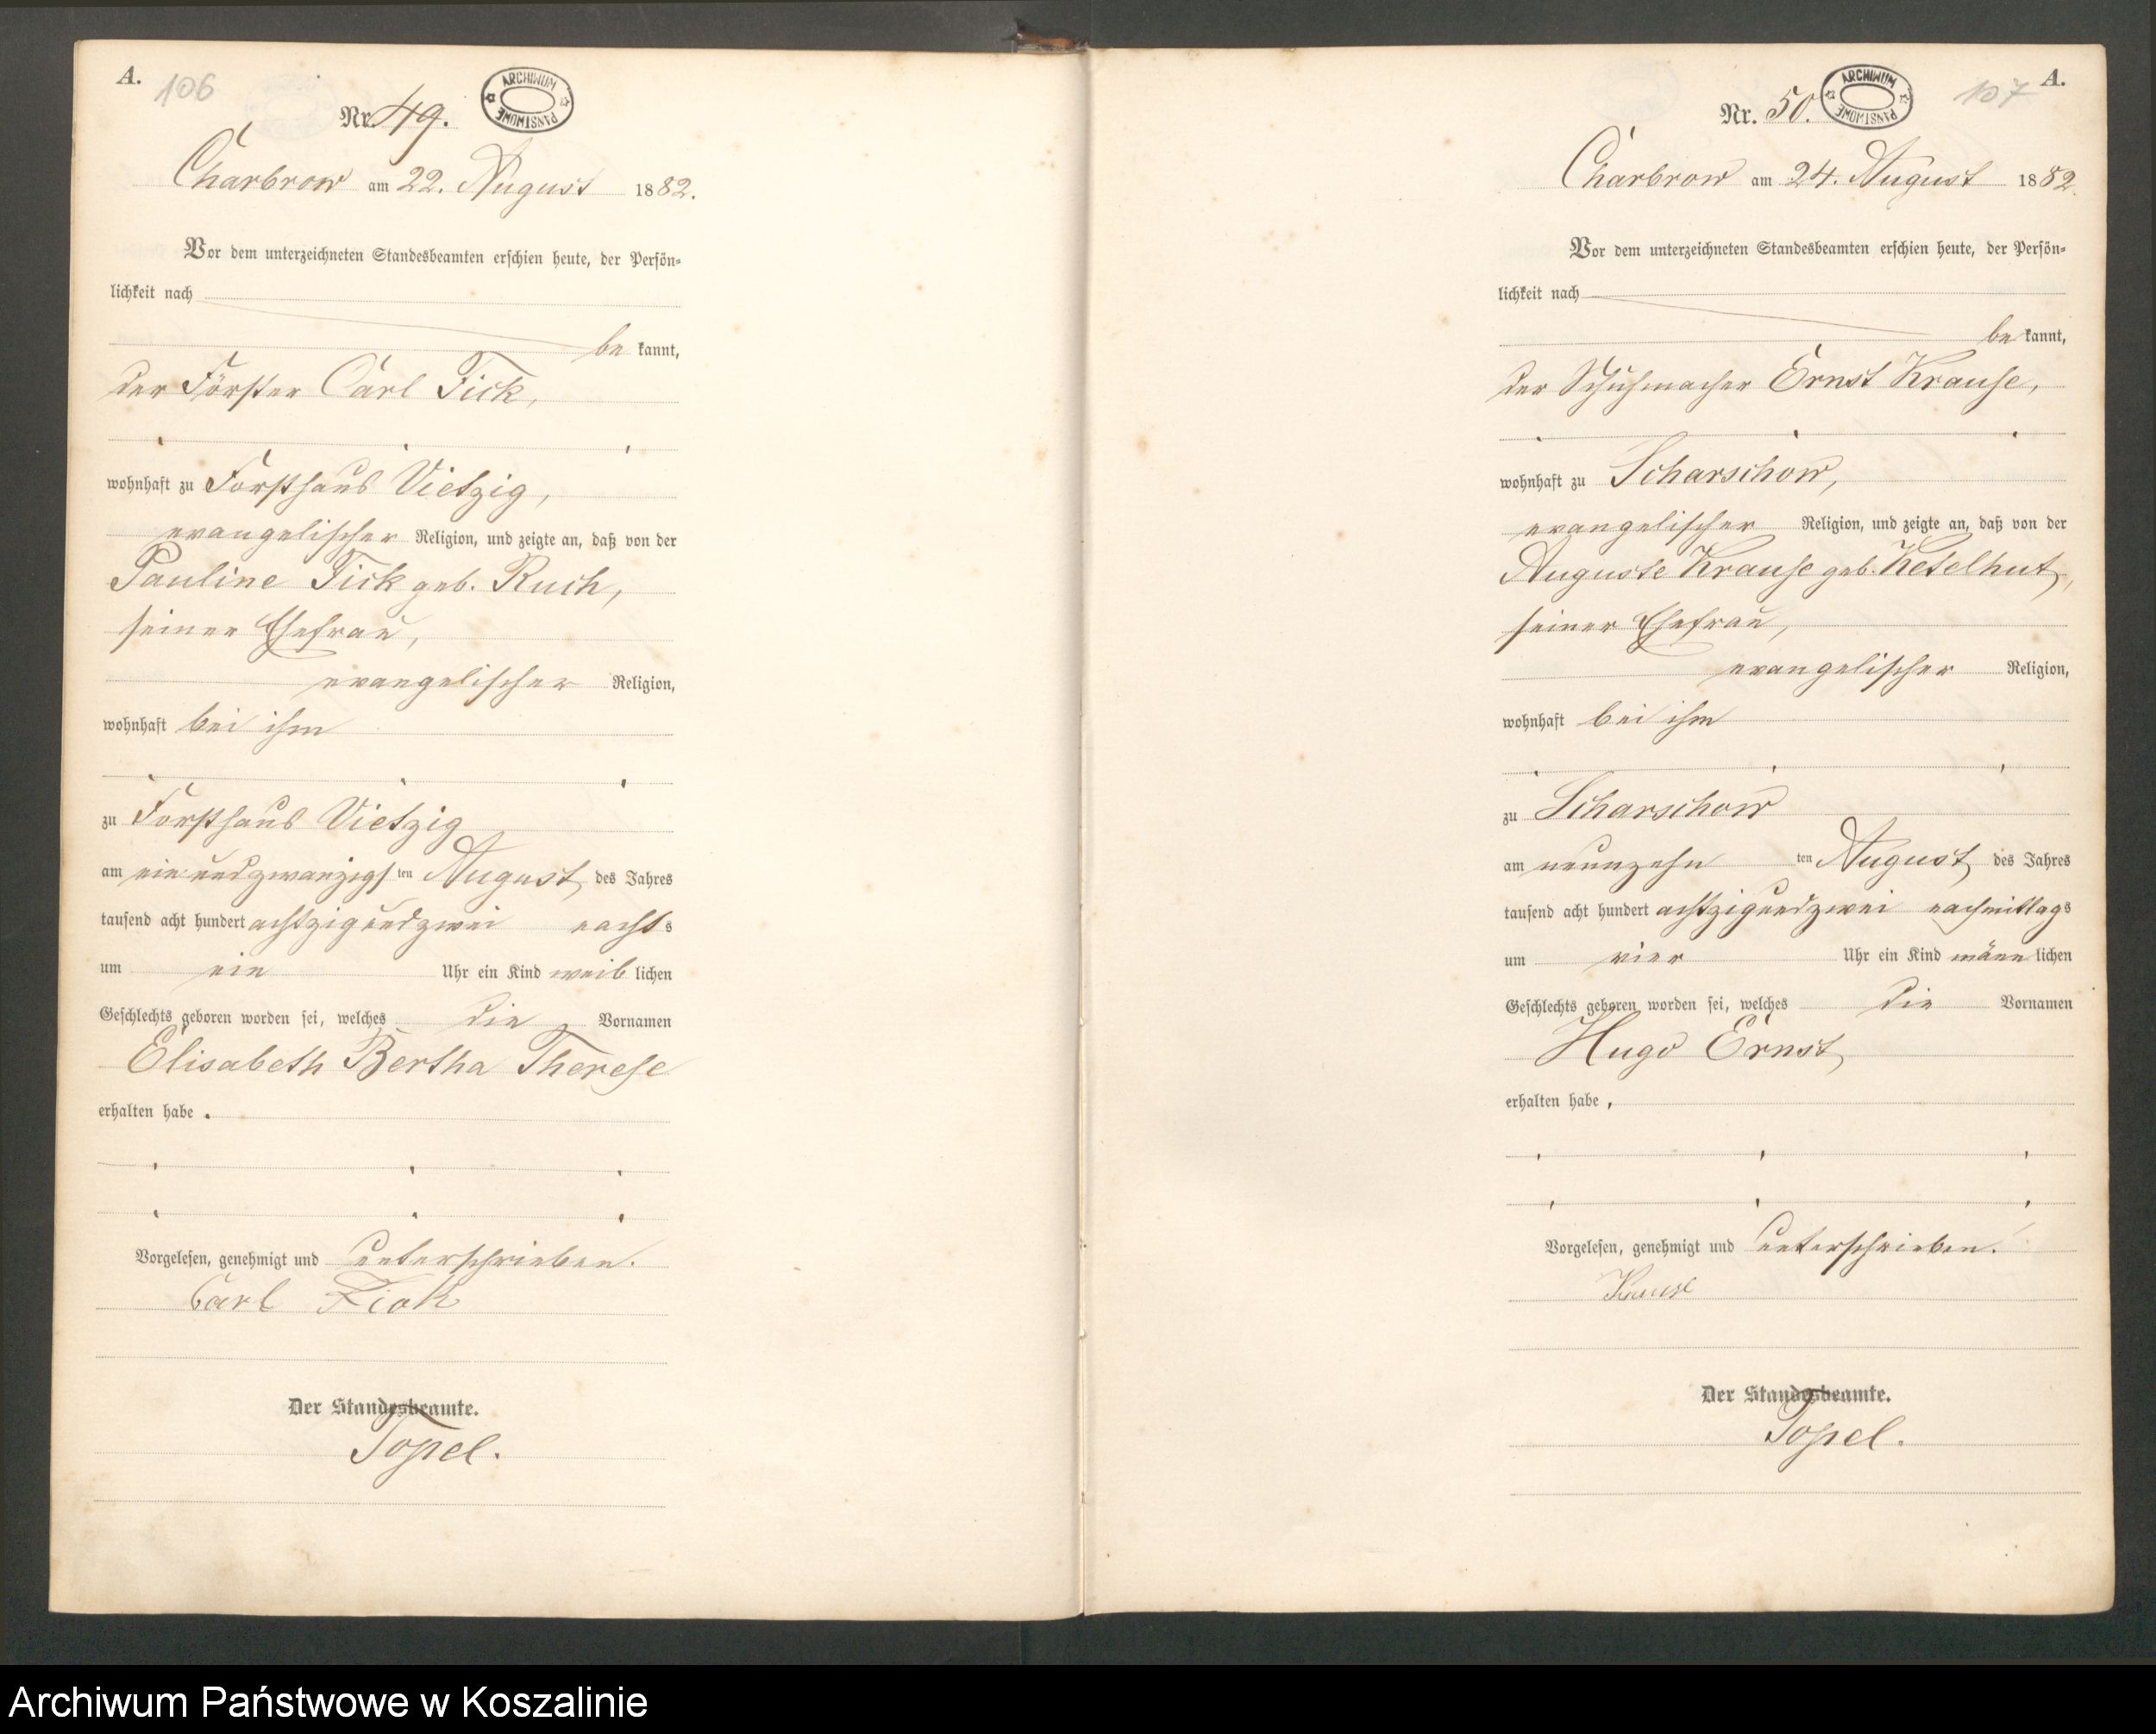 A.
106
Nr. 49.
ARCHIWUM PAŃSTWOWE
Charbrow am 22. August 1882.
Vor dem unterzeichneten Standesbeamten erschien heute, der Persön-
lichkeit nach
be kannt,
der Förster Carl Fick,
wohnhaft zu Forsthaus Vietzig,
evangelischer Religion, und zeigte an, daß von der
Pauline Fick geb. Ruch,
seiner Ehefrau,
evangelischer Religion,
wohnhaft bei ihm
zu Forsthaus Vietzig
am ein und zwanzigsten August des Jahres
tausend acht hundert achtzig und zwei nachts
um ein Uhr ein Kind weiblichen
Geschlechts geboren worden sei, welches die Vornamen
Elisabeth Bertha Therese
erhalten habe.
Vorgelesen, genehmigt und unterschrieben.
Carl Fick
Der Standesbeamte.
Topel.
A.
107
Nr. 50.
ARCHIWUM PAŃSTWOWE
Charbrow am 24. August 1882
Vor dem unterzeichneten Standesbeamten erschien heute, der Persön-
lichkeit nach
be kannt,
der Schuhmacher Ernst Krause,
wohnhaft zu Scharschow,
evangelischer Religion, und zeigte an, daß von der
Auguste Krause geb. Ketelhut,
seiner Ehefrau,
evangelischer Religion,
wohnhaft bei ihm
zu Scharschow
am neunzehnten August des Jahres
tausend acht hundert achtzig und zwei nachmittags
um vier Uhr ein Kind männlichen
Geschlechts geboren worden sei, welches die Vornamen
Hugo Ernst
erhalten habe,
Vorgelesen, genehmigt und unterschrieben.
Krause
Der Standesbeamte.
Topel.
Archiwum Państwowe w Koszalinie